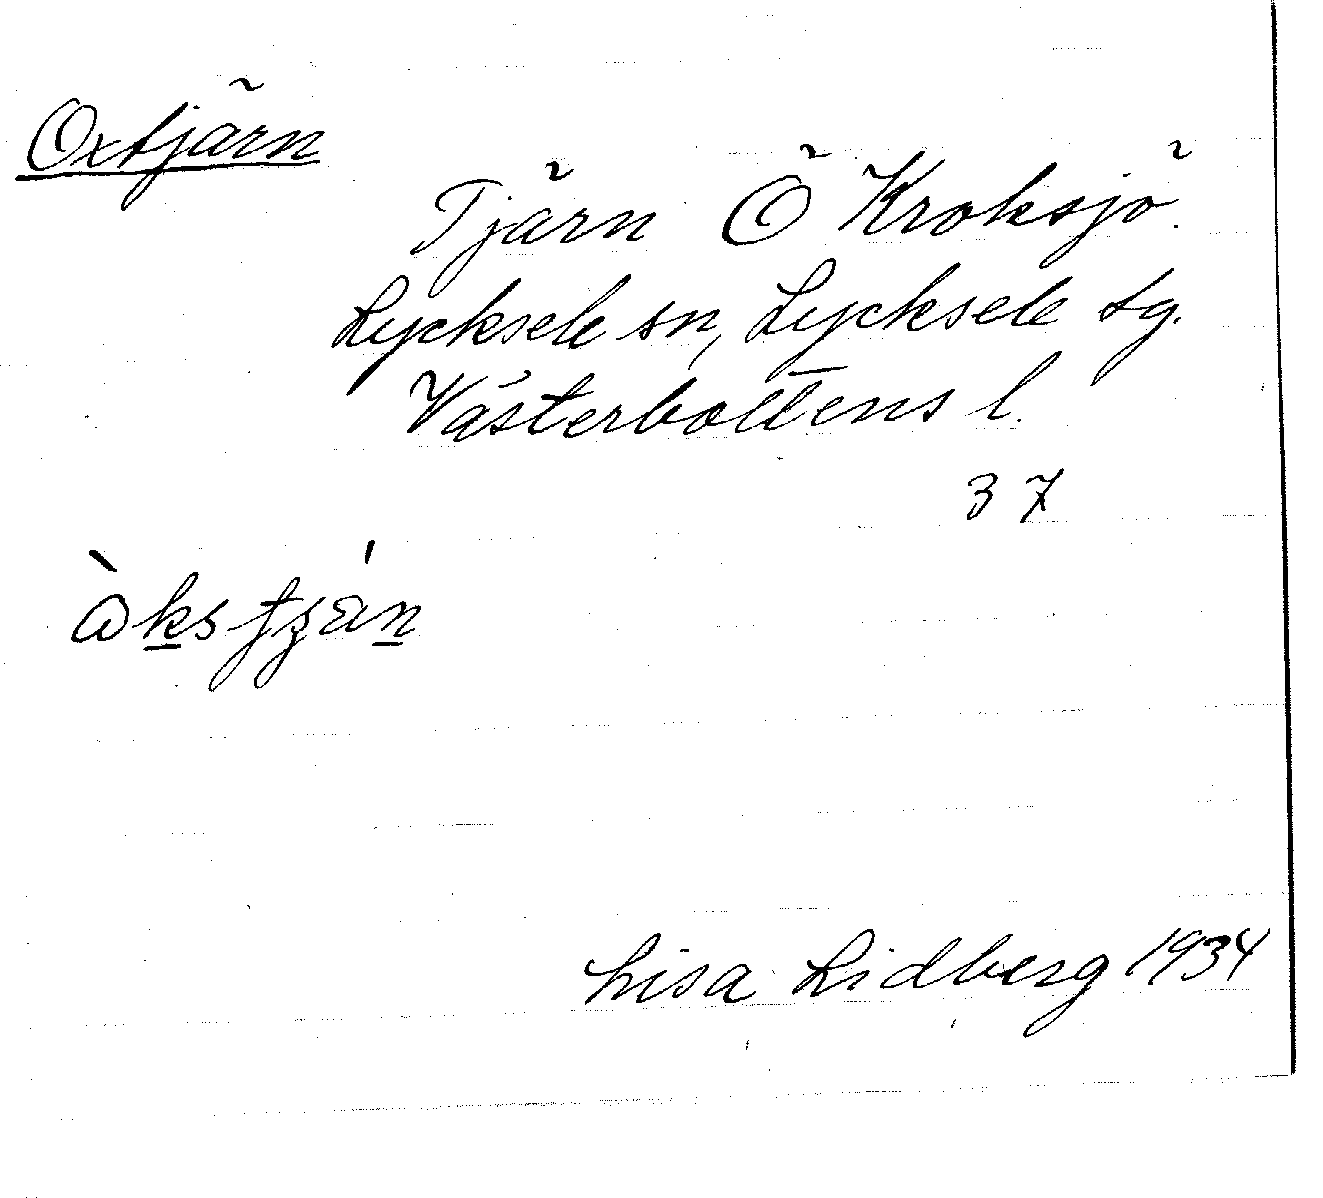 Oxtjärn
Tjärn Ö Kroksjö.
Lycksele sn, Lycksele tg.
Västerbottens l.
37
Lisa Lidberg 1934